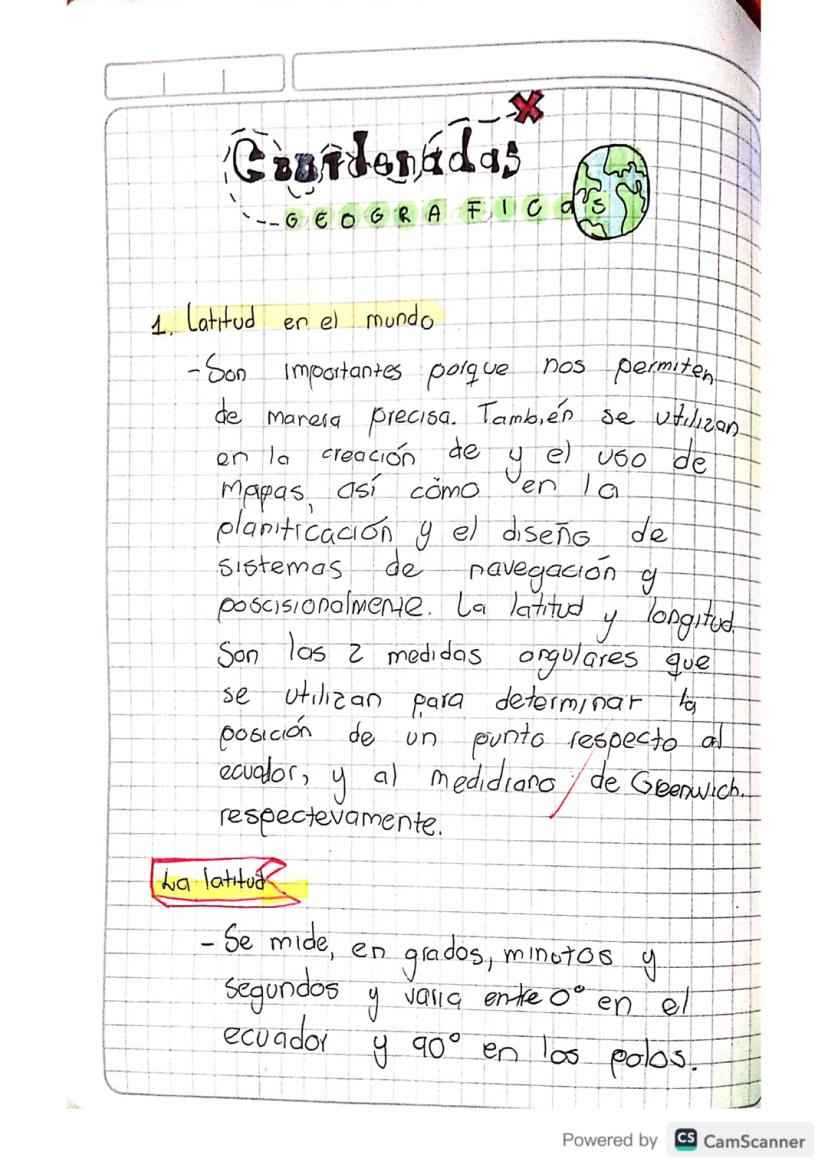 Coordenadas
GEOGRAFICas
1. Latitud en el mundo
-Son importantes porque nos permiten
de manera precisa. También se utilizan
en la creación de y el uso de
mapas, así cómo en la
planificación y el diseño de
sistemas de navegación y
poscisionalmente. La latitud y longitud
Son las 2 medidas angulares que
se utilizan para determinar la
posición de un punto respecto al
ecuador, y al medidiano de Greenwich.
respectevamente.
La latitud
- Se mide, en grados, minutos y
segundos y varia entre 0° en el
ecuador y 90° en los polos.
Powered by CS CamScanner